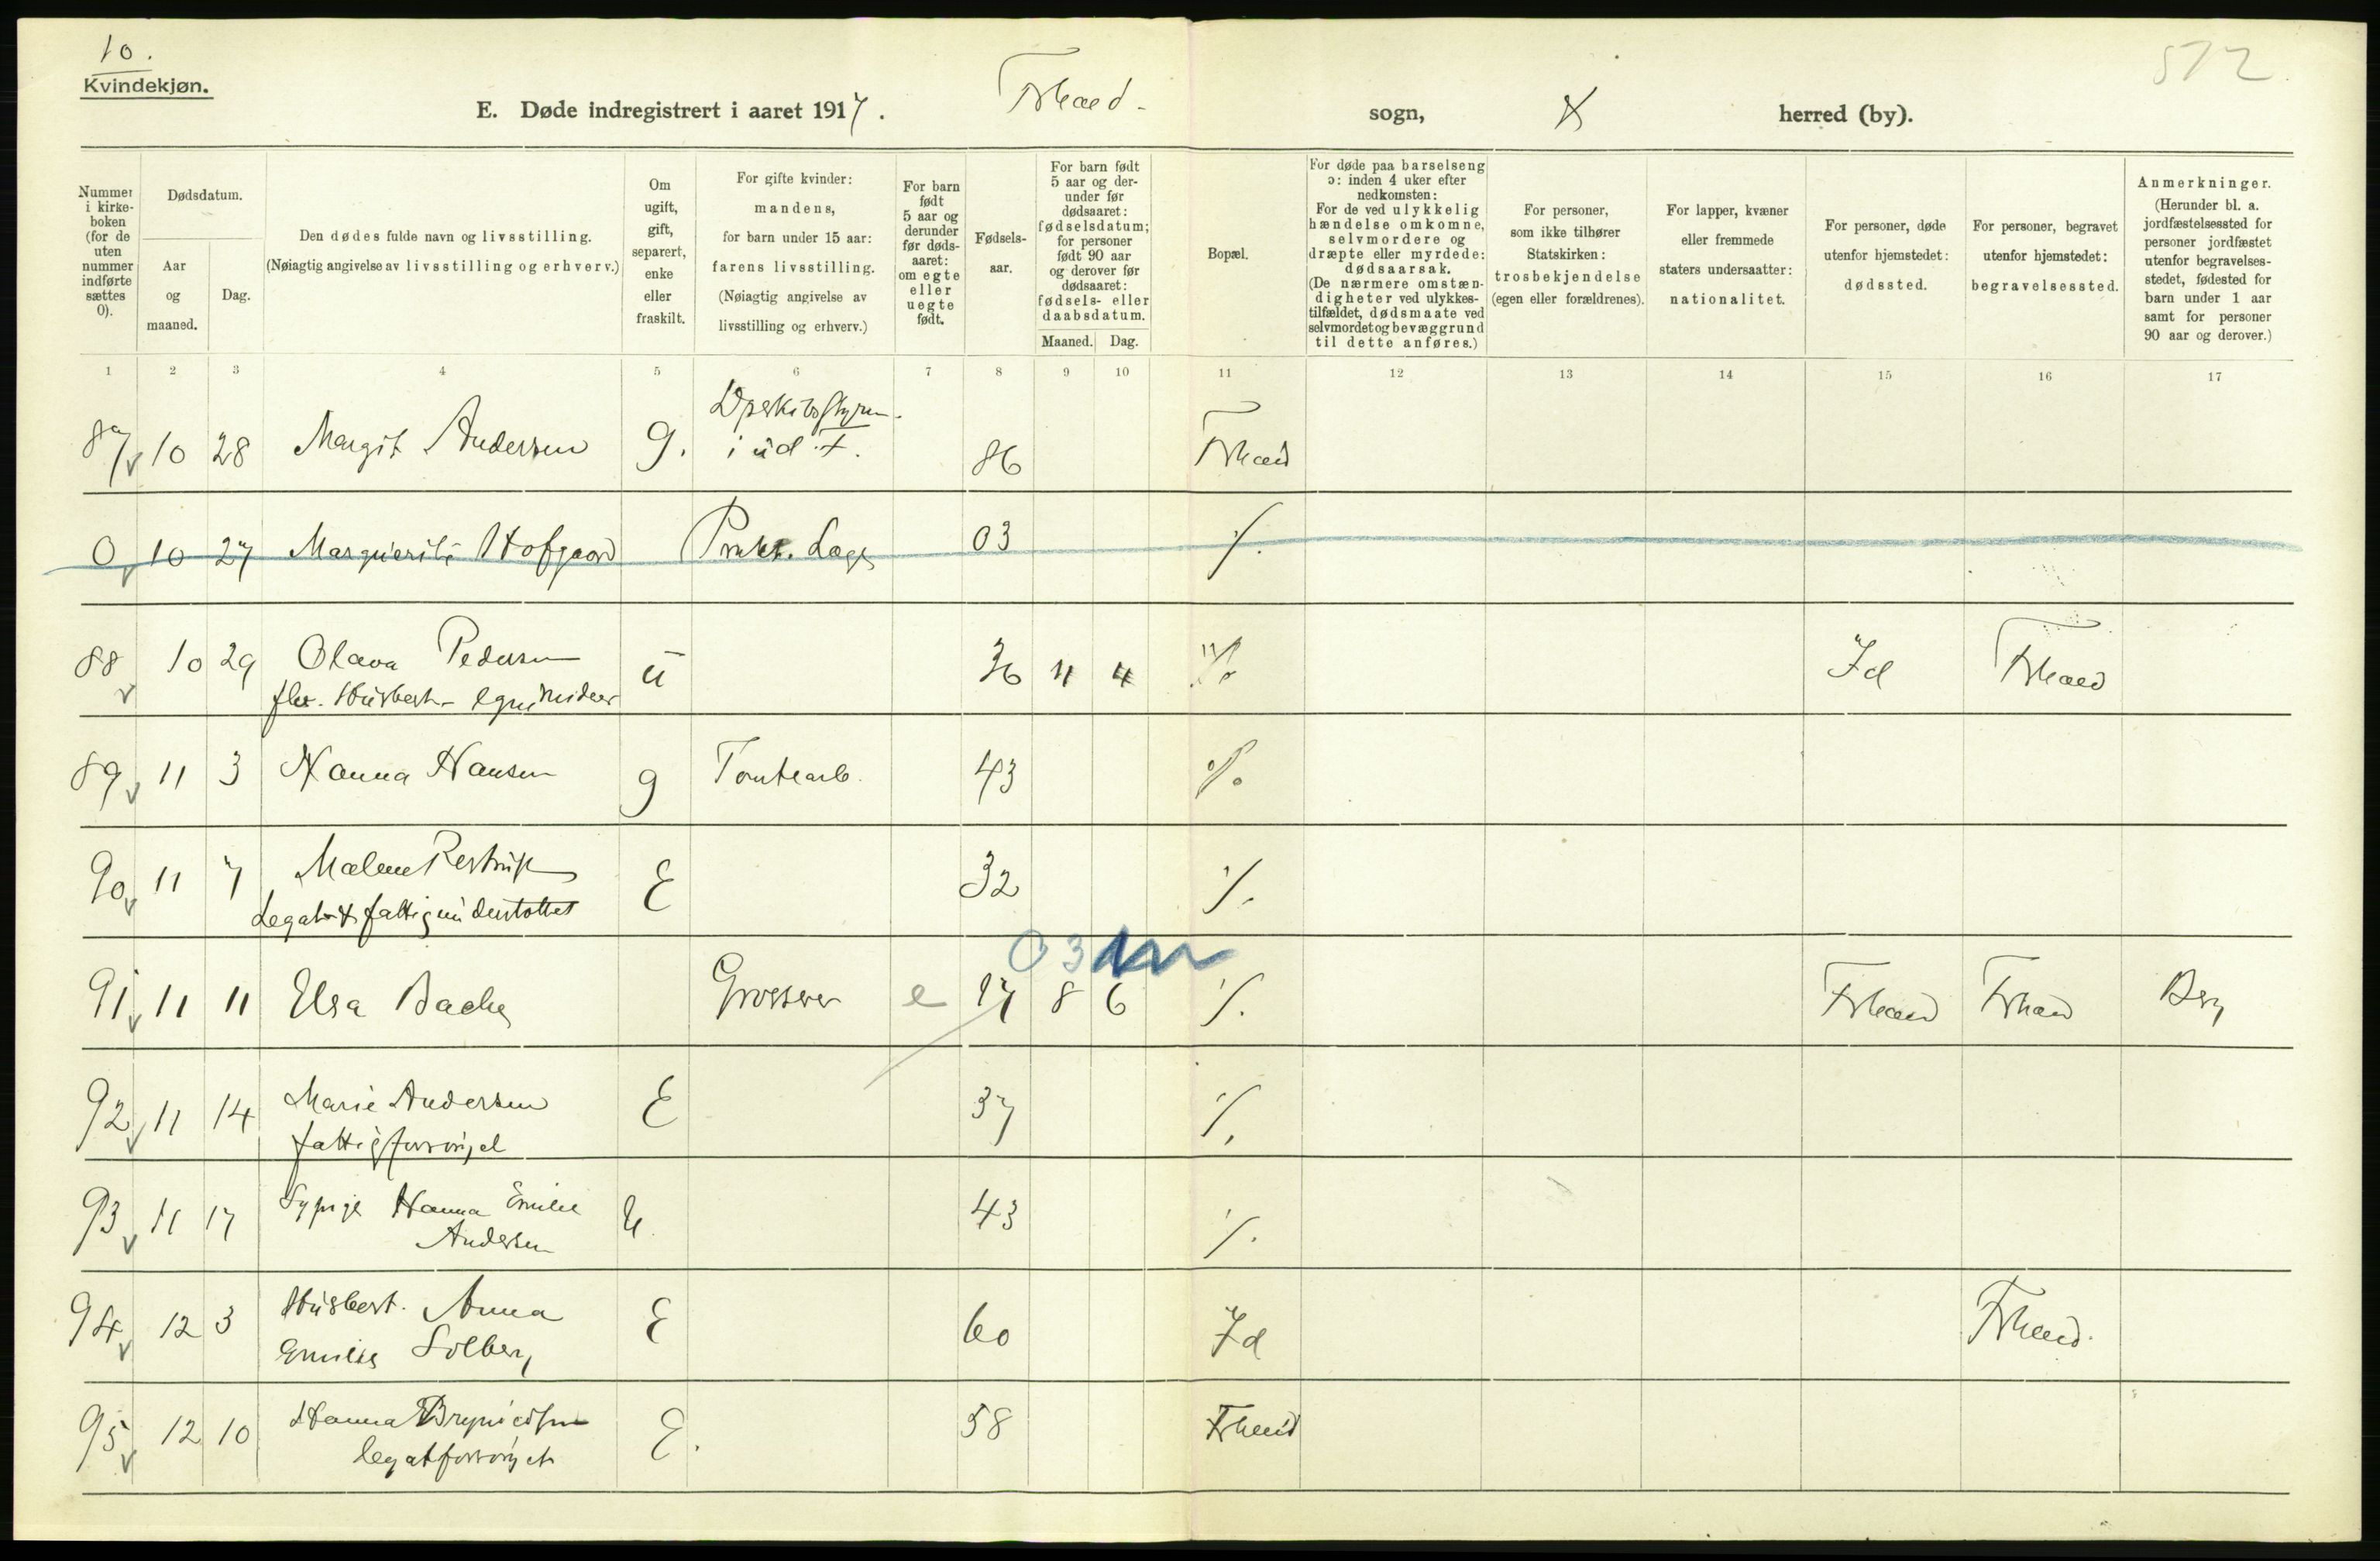 10.
Kvindekjøn.
572
E. Døde indregistrert i aaret 1917. Frhald - sogn, herred (by).
Nummer i kirkeboken (for de uten nummer indførte sættes 0).
Dødsdatum.
Aar og maaned.
Dag.
Den dødes fulde navn og livsstilling.
(Nøiagtig angivelse av livsstilling og erhverv.)
Om ugift, gift, separert, enke eller fraskilt.
For gifte kvinder: mandens, for barn under 15 aar: farens livsstilling. (Nøiagtig angivelse av livsstilling og erhverv.)
For barn født 5 aar og derunder før dødsaaret: om egte eller uegte født.
Fødselsaar.
For barn født 5 aar og derunder før dødsaaret: fødselsdatum; for personer født 90 aar og derover før dødsaaret: fødsels- eller daabsdatum.
Maaned. Dag.
Bopæl.
For døde paa barselseng ɔ: inden 4 uker efter nedkomsten: For de ved ulykkelig hændelse omkomne, selvmordere og dræpte eller myrdede: dødsaarsak. (De nærmere omstændigheter ved ulykkestilfældet, dødsmaate ved selvmordet og bevæggrund til dette anføres.)
For personer, som ikke tilhører Statskirken: trosbekjendelse (egen eller forældrenes).
For lapper, kvæner eller fremmede staters undersaatter: nationalitet.
For personer, døde utenfor hjemstedet: dødssted.
For personer, begravet utenfor hjemstedet: begravelsessted.
Anmerkninger. (Herunder bl. a. jordfæstelsessted for personer jordfæstet utenfor begravelsesstedet, fødested for barn under 1 aar samt for personer 90 aar og derover.)
1 2 3 4 5 6 7 8 9 10 11 12 13 14 15 16 17
87 10 28 Margit Andersen g. 86 Frhald
0 10 27 Marguerite Hofgaard Prakt. Læge 03 ./.
88 10 29 Olava Pedersen u 36 11 4 Id Frhald
fhv. Husbest. - egne midler
89 11 3 Hanna Hansen g Tomtearb. 43
90 11 7 Malene Restrup E 32 ./.
Legat & fattigunderstøttet
03
91 11 11 Elsa Bache Grosserer e 17 8 6 ./. Frhald Frhald Berg
92 11 14 Marie Andersen E 37 ./.
fattigforsørget
93 11 17 Sypige Hanna Emilie U. 43 ./.
Andersen
94 12 3 Husbest. Anna E 60 Id Frhald.
Emilie Solberg
95 12 10 Hanna Brynildsen E. 58 Frhald
legatforsørget